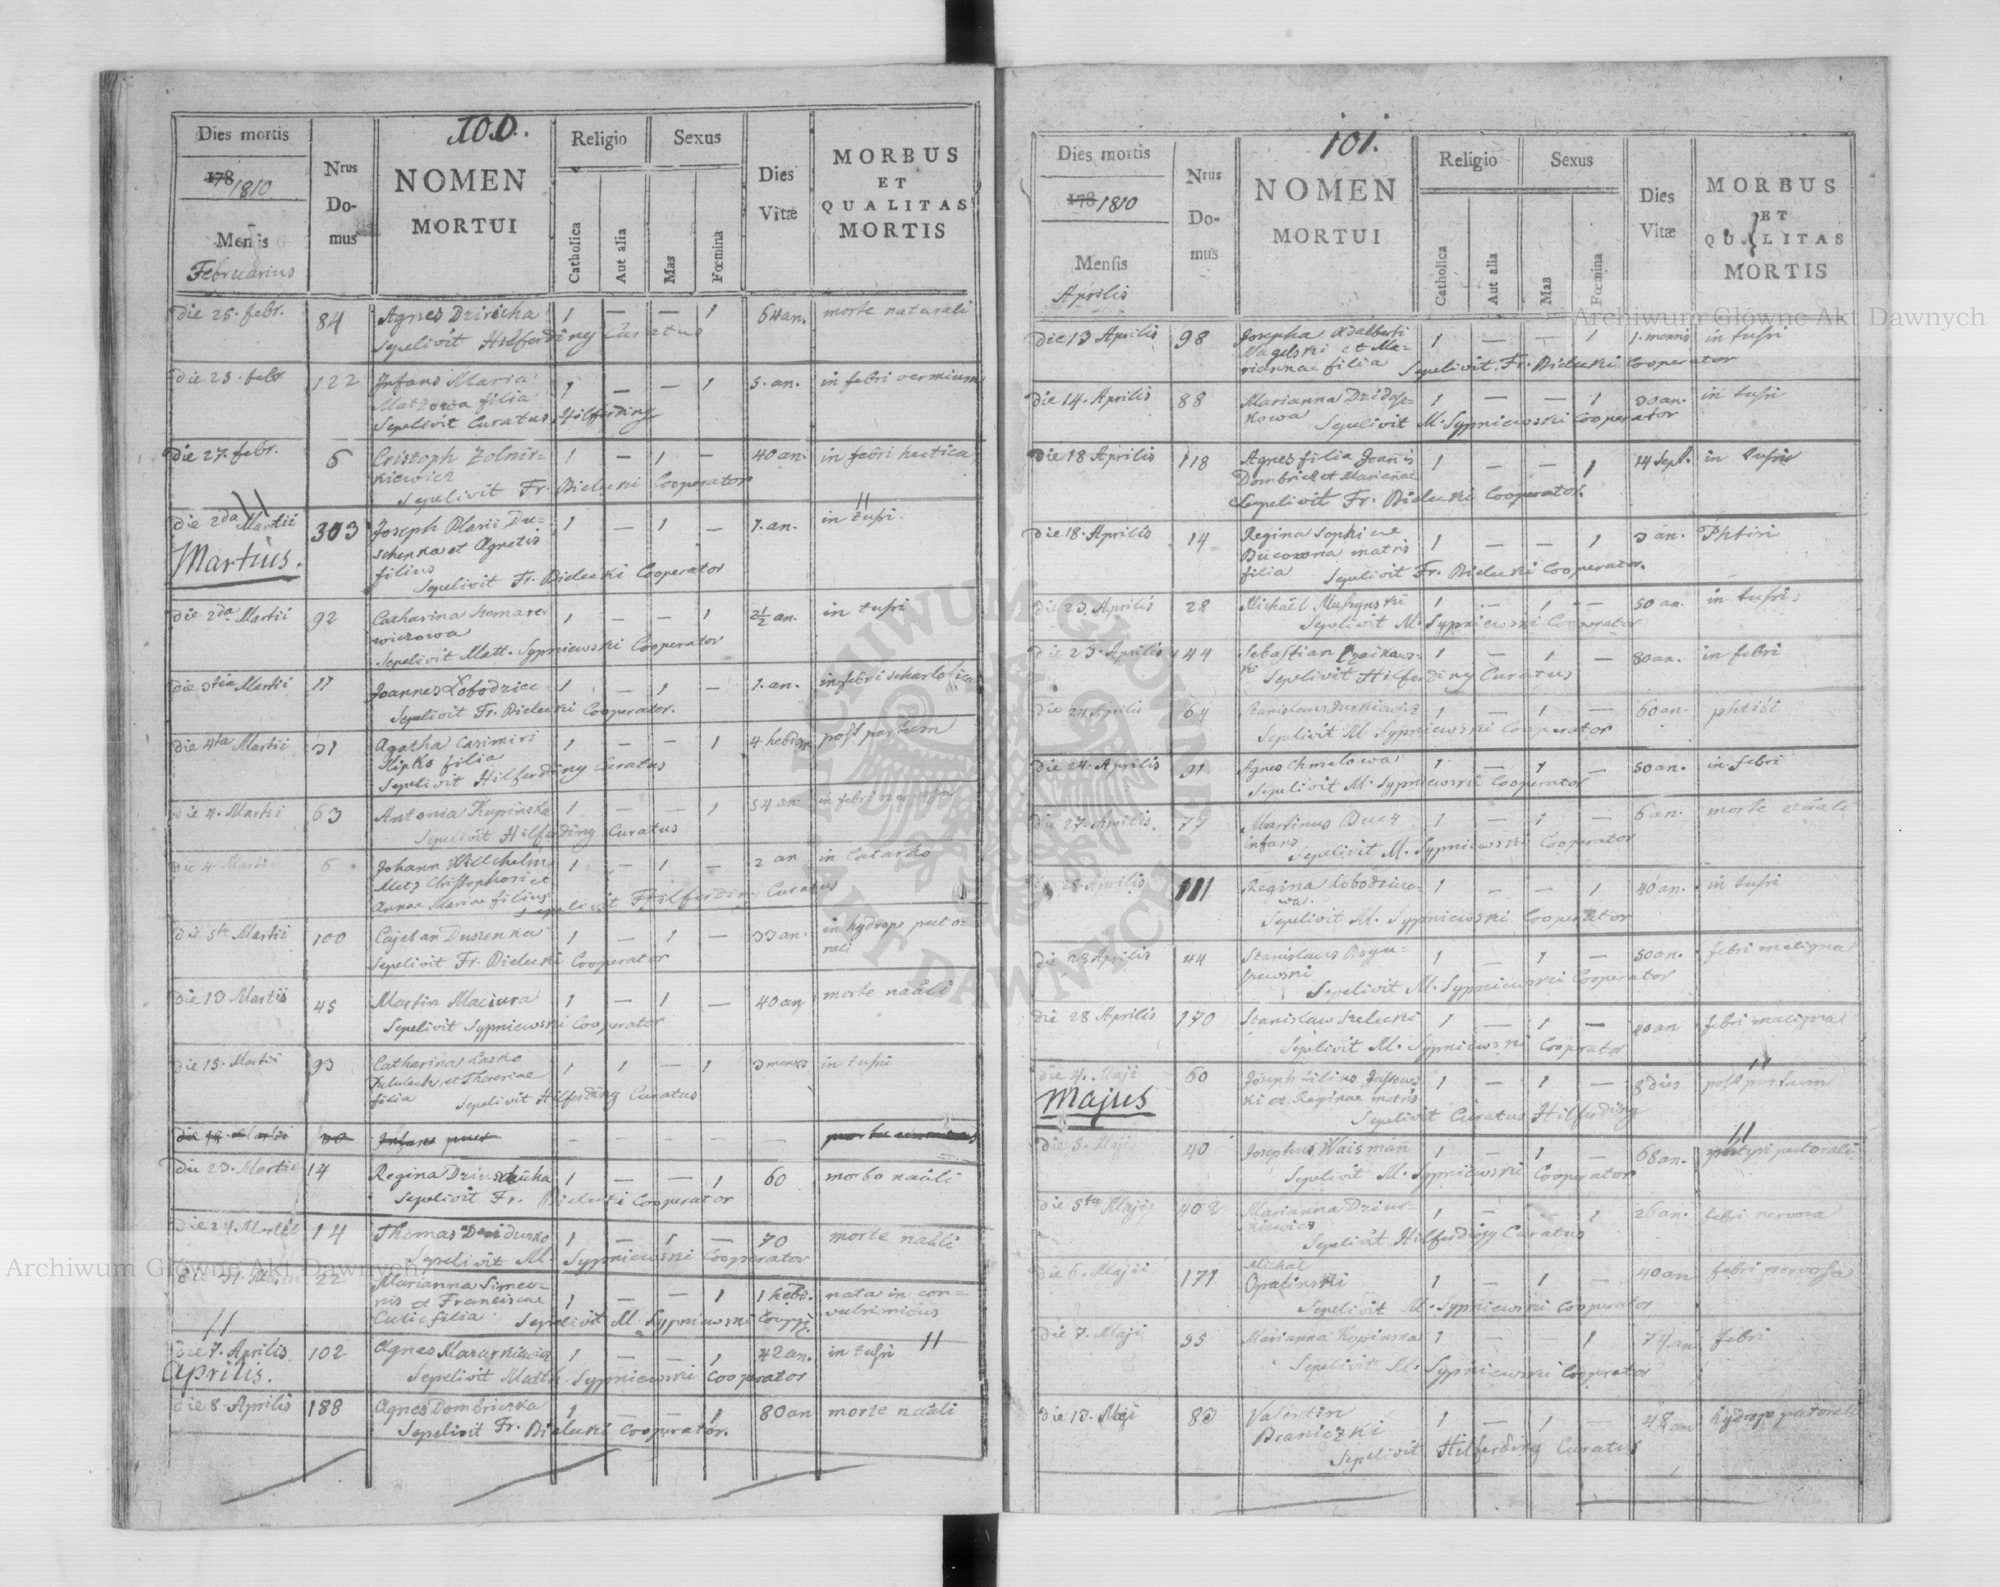 100.
Dies mortis
178 1810
Mensis
Februarius
Nrus Do-mus
NOMEN
MORTUI
Religio
Catholica
Aut alia
Sexus
Mas
Fœmina
Dies
Vitæ
MORBUS
ET
QUALITAS
MORTIS
die 25. febr. 84 Agnes 1 — — 1 64 an. morte naturali
Sepelivit Hilferding Curatus
die 25. febr. 122 Infans Maria 1 — — 1 5. an. in febri vermium
filia
Sepelivit Curatus Hilferding
die 27. febr. 6 Cristoph Zolnir- 1 — 1 — 40 an. in febri hectica
kiewicz
Sepelivit Fr. Bielecki Cooperator
die 2da Martii 303 Joseph 1 — 1 — 1. an. in tussi
Martius.
et Agnetis
filius
Sepelivit Fr. Bielecki Cooperator
die 2da Martii 92 Catharina 1 — — 1 2 1/2 an. in tussi
Sepelivit Matt. Sypniewski Cooperator
die 3tia Martii 11 Joannes Lobodzicz 1 — 1 — 1. an. in febri
Sepelivit Fr. Bielecki Cooperator.
die 4ta Martii 31 Agatha Casimiri 1 — — 1 4 hebdom post partum
filia
Sepelivit Hilferding Curatus
die 4. Martii 63 Antonia Kupinska 1 — — 1 54 an. in febri nervosa
Sepelivit Hilferding Curatus
die 4. Martii 6 Johann Willchelm 1 — 1 — 2 an
Metz Christophori et
Annae Mariae filius
Sepelivit Hilferding Curatus
die 5te Martii 100 Cajetan Duszenka 1 — 1 — 33 an. in hydrope pecto-
rali
Sepelivit Fr. Bielecki Cooperator
die 13 Martii 45 Martin Maciura 1 — 1 — 40 an morte naäli
Sepelivit Sypniewski Cooperator
die 15. Martii 93 Catharina Lasko 1 1 — 1 3 menses in tussi
et Theresiae
filia Sepelivit Hilferding Curatus
die 23. Martii 14 Regina 1 — — 1 60 morbo naäli
Sepelivit Fr. Bielecki Cooperator
die 24. Martii 14 Thomas 1 — 1 — 70 morte naäli
Sepelivit M. Sypniewski Cooperator
22 Marianna Simeo- 1 — — 1 1 hebd. nata in con-
nis et Franciscae
filia Sepelivit M. Sypniewski
die 7. Aprilis 102 Agnes Mazurkiewicz 1 — — 1 42 an. in tussi
Aprilis.
Sepelivit Matth. Sypniewski Cooperator
die 8 Aprilis 188 Agnes Dombrieska 1 — — 1 80 an morte naäli
Sepelivit Fr. Bielecki Cooperator.
101.
Dies mortis
178 1810
Mensis
Aprilis
Nrus Do-mus
NOMEN
MORTUI
Religio
Catholica
Aut alia
Sexus
Mas
Fœmina
Dies
Vitæ
MORBUS
ET
QUALITAS
MORTIS
die 13 Aprilis 98 Josepha Adalberti 1 — — 1 1. mensis in tussi
Nagelski et Ma-
riannae filia Sepelivit Fr. Bielecki Cooperator
die 14. Aprilis 88 Marianna 1 — — 1 30 an. in tussi
kowa Sepelivit M. Sypniewski Cooperator
die 18 Aprilis 118 Agnes filia Joannis 1 — — 1 14 Sept. in tussi
et Mariannae
Sepelivit Fr. Bielecki Cooperator.
die 18. Aprilis 14 Regina Sophiae 1 — — 1 3 an. Phtisi
matris
filia Sepelivit Fr. Bielecki Cooperator.
die 23. Aprilis 28 Michäel 1 — 1 — 50 an. in tussi
Sepelivit M. Sypniewski Cooperator
die 23. Aprilis 44 Sebastian 1 — 1 — 80 an. in febri
Sepelivit Hilferding Curatus
die 24 Aprilis 64 Stanislaus 1 — 1 — 60 an. phtisi
Sepelivit M. Sypniewski Cooperator
die 24. Aprilis 91 Agnes Chmelowa 1 — 1 — 50 an. in febri
Sepelivit M. Sypniewski Cooperator
die 27. Aprilis. 77 Martinus 1 — 1 — 6 an. morte naäli
infans
Sepelivit M. Sypniewski Cooperator
28. Aprilis 111 Regina Lobodzico- 1 — — 1 40 an. in tussi
wa.
Sepelivit M. Sypniewski Cooperator
die 28 Aprilis 44 Stanislaus Bogu- 1 — 1 — 50 an. febri maligna
szewski
Sepelivit M. Sypniewski Cooperator
die 28 Aprilis 170 Stanislaw 1 — 1 — 40 an febri maligna
Sepelivit M. Sypniewski Cooperator
die 4. Maji 60 Joseph filius 1 — 1 — 8 dies post partum
Majus
ki et Reginae matris
Sepelivit Curatus Hilferding
die 5. Maji 40 Josephus Waisman 1 — 1 — 68 an. pectorali
Sepelivit M. Sypniewski Cooperator
die 5ta Maji 402 Marianna Dziur- 1 — — 1 26 an. febri nervosa
kiewicz
Sepelivit Hilferding Curatus
die 6. Maji 171 Michal 1 — 1 — 40 an febri nervosa
Opalinski
Sepelivit M. Sypniewski Cooperator
die 7. Maji 95 Marianna Kopinska 1 — — 1 74 an febri
Sepelivit M. Sypniewski Cooperator
die 13. Maji 83 Valentin 1 — 1 — 48 an hydrope pectorali
Braniczki
Sepelivit Hilferding Curatus
Archiwum Główne Akt Dawnych
Archiwum Główne Akt Dawnych
ARCHIWUM GŁÓWNE AKT DAWNYCH